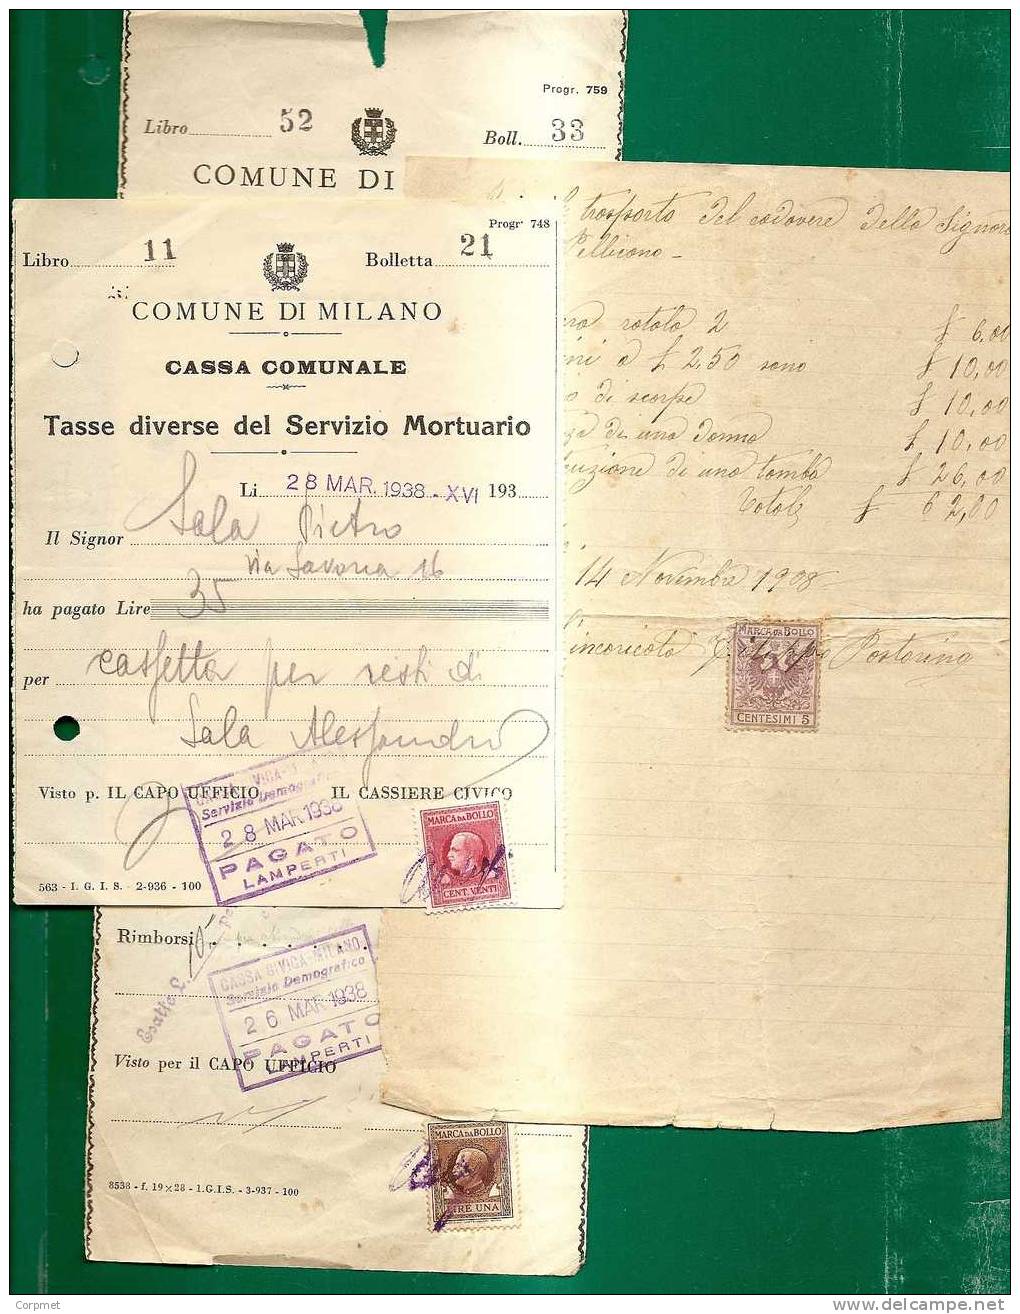 Progr. 759
Libro 52 Boll. 33
COMUNE DI
Progr. 748
Libro 11 Bolletta 21
COMUNE DI MILANO
CASSA COMUNALE
Tasse diverse del Servizio Mortuario
Li 28 MAR. 1938 - XVI 193
Il Signor Sala Pietro
Via Savona 16
ha pagato Lire 35
per cassetta per resti di
Sala Alessandro
Visto p. IL CAPO UFFICIO IL CASSIERE CIVICO
Servizio Demografico
28 MAR. 1938
PAGATO
LAMPERTI
MARCA DA BOLLO
CENT. VENTI
563 - I. G. I. S. - 2-936 - 100
trasporto del cadavere della Signora
Pellicono -
rotolo 2 £ 6,00
a £ 2,50 sono £ 10,00
di scarpe £ 10,00
di una donna £ 10,00
di una tomba £ 26,00
Totale £ 62,00
14 Novembre 1908
incaricato Postorino
MARCA DA BOLLO
CENTESIMI 5
Rimborsi
Esatte L. 10
CASSA CIVICA - MILANO
Servizio Demografico
26 MAR. 1938
PAGATO
LAMPERTI
Visto per il CAPO UFFICIO
MARCA DA BOLLO
LIRE UNA
8538 - f. 19 × 28 - I.G.I.S. - 3-937 - 100
Corpmet
delcampe.net